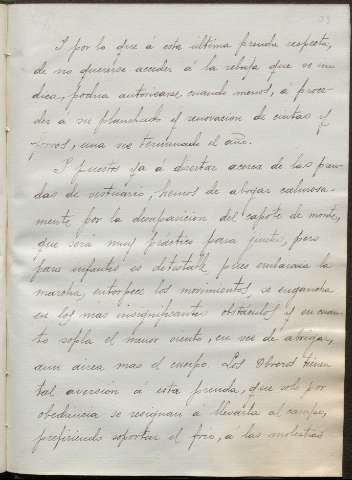 Y por lo que á esta última prenda respecta,
de no quererse acceder á la rebaja que se in-
dica, podria autorizarse, cuando menos, á proce-
der a su planchado y renovacion de cintas y
forros, una vez terminado el año.
Y puestos ya á disertar acerca de las pren-
das de vestuario, hemos de abogar calurosa-
mente por la desaparicion del capote de monte,
que será muy práctico para ginetes, pero
para infantes es detestable pues embaraza la
marcha, entorpece los movimientos, se engancha
en los mas insignificantes obstáculos y en cuan-
to sopla el menor viento, en vez de abrigar,
aun airea mas el cuerpo. Los Obreros tienen
tal aversión á esta prenda, que solo por
obediencia se resignan á llevarla al campo,
prefiriendo soportar el frio, a las molestias